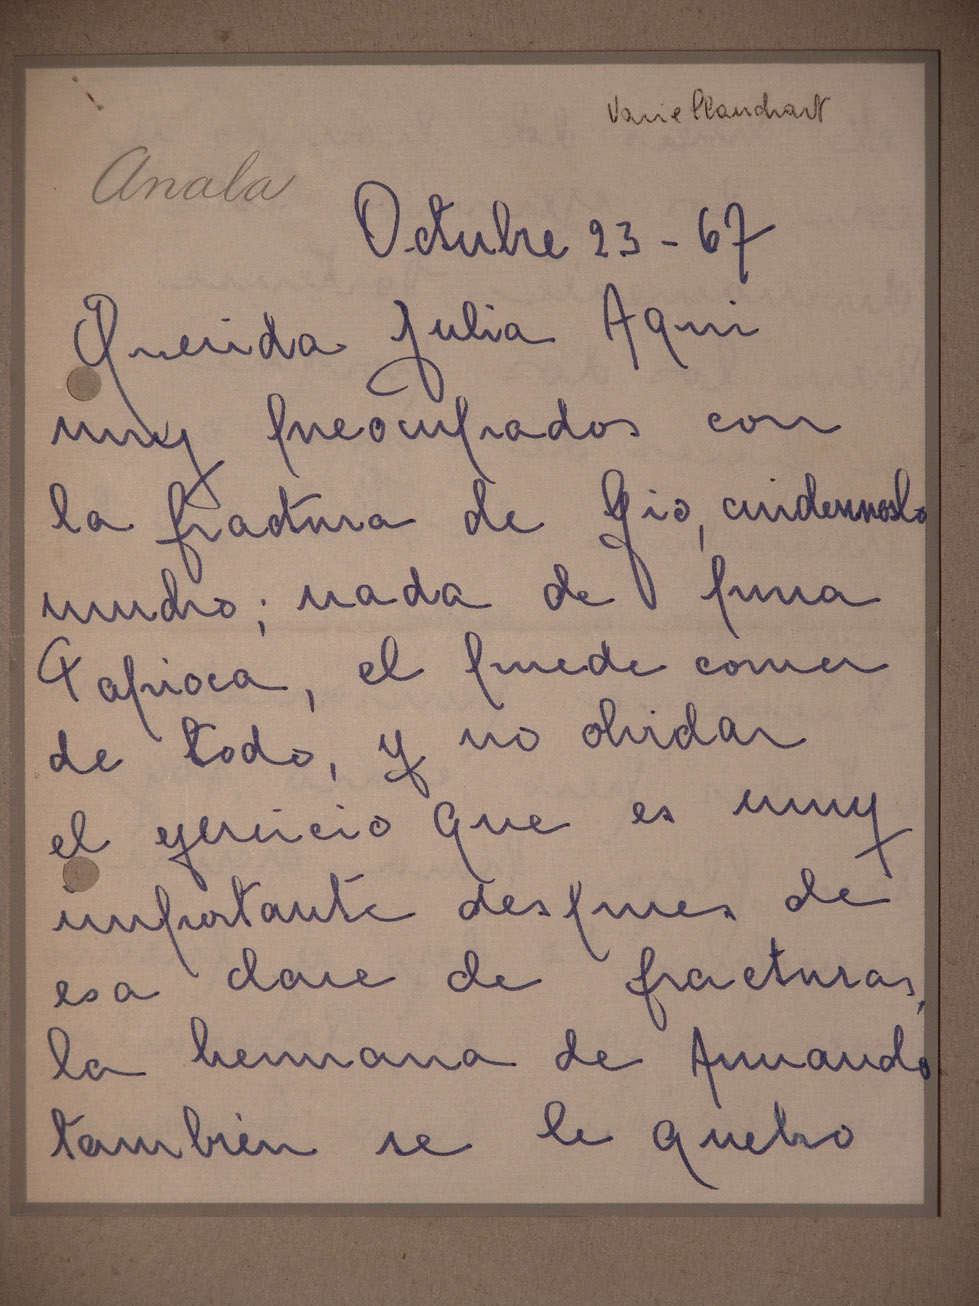 Anala
Octubre 23-67
Querida Julia Aqui
muy preocupados con
la fractura de Gio, cuidennoslo
mucho; nada de pura
Tapioca, el puede comer
de todo, y no olvidar
el ejercicio que es muy
importante despues de
esa clase de fracturas,
la hermana de Armando
también se le quebro